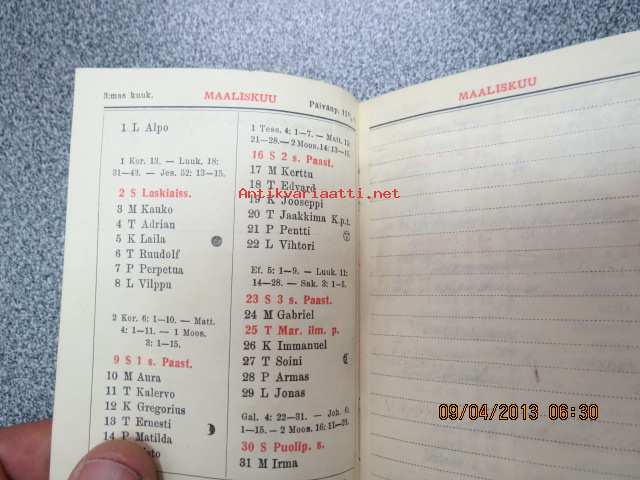 3:mas kuuk. MAALISKUU
1 L Alpo
1 Kor. 13. — Luuk. 18:
31—43. — Jes. 52: 13—15.
2 S Laskiaiss.
3 M Kauko
4 T Adrian
5 K Laila
6 T Ruudolf
7 P Perpetua
8 L Vilppu
2 Kor. 6: 1—10. — Mati.
4: 1—11. — 1 Moos.
3: 1—15.
9 S 1 s. Paast.
10 M Aura
11 T Kalervo
12 K Gregorius
13 T Ernesti
14 P Matilda
Päivänp.
1 Tess. 4: 1—7. — Matt. 15:
21—28. — 2 Moos. 14: 13—
16 S 2 s. Paast.
17 M Kerttu
18 T Edvard
19 K Jooseppi
20 T Jaakkima K.p.t.
21 P Pentti
22 L Vihtori
Ef. 5: 1—9. — Luuk. 11:
14—28. — Sak. 3: 1—5.
23 S 3 s. Paast.
24 M Gabriel
25 T Mar. ilm. p.
26 K Immanuel
27 T Soini
28 P Armas
29 L Jonas
Gal. 4: 22—31. — Joh. 6:
1—15. — 2 Moos. 16: 11—
30 S Puolip. s.
31 M Irma
MAALISKUU
Antikvariaatti.net
09/04/2013 06:30